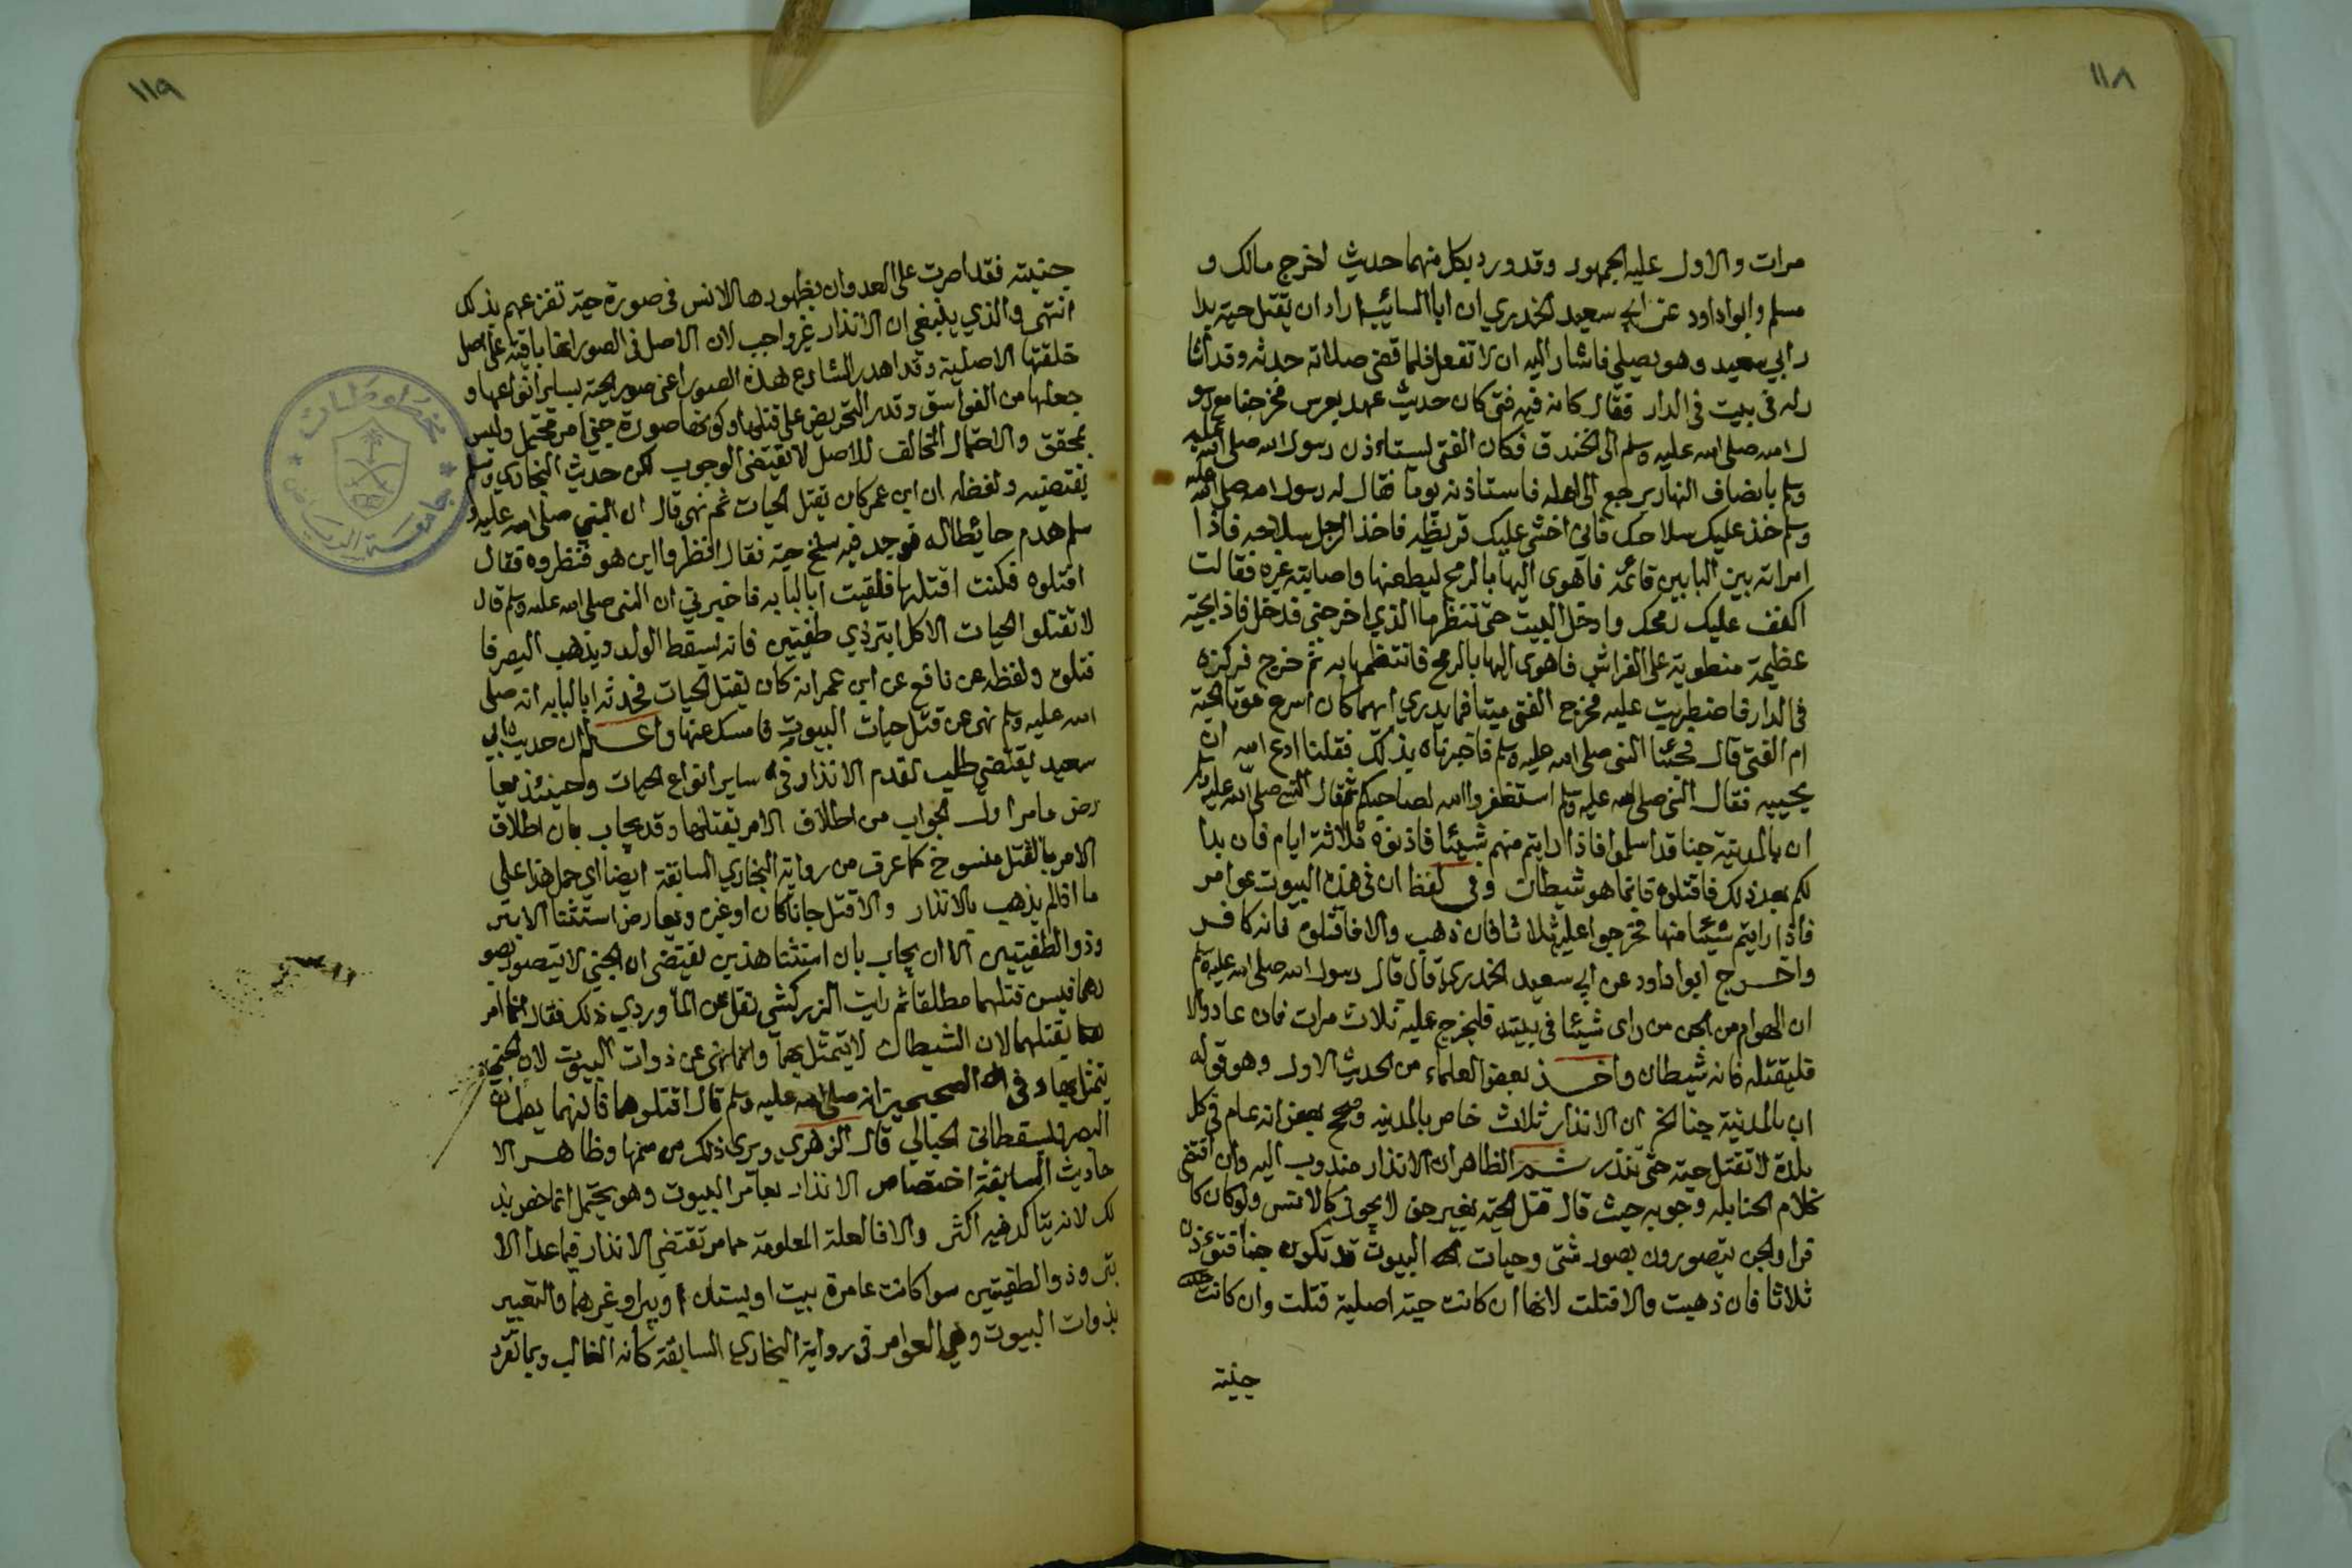 ١١٨
مرات والاول عليه الجمهور وقد ورد بكل منهما حديث اخرج مالك و
مسلم وابوداود عن ابي سعيد الخدري ان ابا السائب اراد ان يقتل حية بدا
ر ابي سعيد وهو يصلي فاشار اليه ان لا تفعل فلما قضى صلاته حدثه وقد اشا
ر له في بيت في الدار فقال كان فيه فتى كان حديث عهد بعرس فخرجنا مع رسو
ل الله صلى الله عليه وسلم الى الخندق فكان الفتى يستاءذن رسول الله صلى الله عليه
وسلم بانصاف النهار يرجع الى اهله فاستاذنه يوما فقال له رسول الله صلى الله عليه
وسلم خذ عليك سلاحك فاني اخشى عليك قريظه فاخذ الرجل سلاحه فاذا
امراته بين البابين قائمة فاهوى اليها بالرمح ليطعنها واصابته غيره فقالت
اكفف عليك رمحك وادخل البيت حتى تنظر ما الذي اخرجني فدخل فاذا بحية
عظيمة منطوية على الفراش فاهوى اليها بالرمح فانتظمها به ثم خرج فركزه
في الدار فاضطربت عليه فخرج الفتى ميتا فما يدري ايهما كان اسرع موتا الحية
ام الفتى قال فجئنا النبي صلى الله عليه وسلم فاخبرناه بذلك فقلنا ادع الله ان
يحييه فقال النبي صلى الله عليه وسلم استغفروا الله لصاحبكم ثم قال النبي صلى الله عليه وسلم
ان بالمدينة جنا قد اسلموا فاذا رايتم منهم شيئا فاذنوه ثلاثة ايام فان بدا
لكم بعد ذلك فاقتلوه فانما هو شيطان وفي لفظ ان في هذه البيوت عوامر
فاذا رايتم شيئا منها فحرجوا عليه ثلاثا فان ذهب والا فاقتلوه فانه كافر
واخرج ابوا داود عن ابي سعيد الخدري قال قال رسول الله صلى الله عليه وسلم
ان الهوام من الجن من راى شيئا في بيته فليخرج عليه ثلاث مرات فان عاد والا
فليقتله فانه شيطان واخذ بعض العلماء من الحديث الاول وهو قوله
ان بالمدينة جنا الخ ان الانذار ثلاث خاص بالمدينه وصحح بعض انه عام في كل
بلدة لا تقتل حية حتى تنذر ثم الظاهر ان الانذار مندوب اليه وان اقتضى
كلام الحنابله وجوبه حيث قال قتل الحية بغير حق لا يجوز كالانس ولو كان كا
فرا والجن يتصورون بصور شتى وحيات البيوت قد تكون جنا فتؤذن
ثلاثا فان ذهبت والا قتلت لانها ان كانت حية اصلية قتلت وان كانت حية
جنية
١١٩
جنية فقد اصرت على العدوان بظهورها للانس في صورة حية تفزعهم بذلك
انتهى والذي ينبغي ان الانذار غير واجب لان الاصل في الصور انها باقية على اصل
خلقتها الاصلية وقد اهدر الشارع هذه الصور اعني صور الحية بساير انواعها و
جعلها من الفواسق وقدر التحريض على قتلها وكونها صورة جني امر محتمل وليس
بمحقق والاحتمال المخالف للاصل لا يقتضي الوجوب لكن حديث البخاري ومسلم
يقتضيه ولفظه ان ابن عمر كان يقتل الحيات ثم نهى قال ان النبي صلى الله عليه و
سلم هدم حائطا له فوجد فيه سلخ حية فقال انظروا اين هو فنظروه فقال
اقتلوه فكنت اقتلها فلقيت ابا لبابه فاخبرني ان النبي صلى الله عليه وسلم قال
لا تقتلوا الحيات الا كل ابتر ذي طفيتين فانه يسقط الولد ويذهب البصر فا
قتلوه ولفظه عن نافع عن ابن عمر انه كان يقتل الحيات فحدثه ابا لبابه انه صلى
الله عليه وسلم نهى عن قتل حيات البيوت فامسك عنها واعلم ان حديث ابي
سعيد يقتضي طلب تقدم الانذار في ساير انواع الحيات وحينئذ يعا
رض ما مر اول الجواب من اطلاق الامر بقتلها وقد يجاب بان اطلاق
الامر بالقتل منسوخ كما عرف من رواية البخاري السابقة ايضا اي حمل هذا على
ما اذا لم يذهب بالانذار والا قتل جانا كان او غيره ويعارض استثنا الابتر
وذو الطفيتين الا ان يجاب بان استثنا هذين يقتضي ان الجني لا يتصور بصو
رهما فيسن قتلهما مطلقا ثم رايت الزركشي نقل عن الماوردي ذلك فقال انما امر
بقتلهما لان الشيطان لا يتمثل بهما وانما نهى عن ذوات البيوت لان الجني
يتمثل بها وفي الصحيحين انه صلى الله عليه وسلم قال اقتلوهما فانهما يطمسان
البصر ويسقطان الحبالي قال الزهري ويرى ذلك من سمها وظاهر الا
حاديث السابقة اختصاص الانذار بعامر البيوت وهو يحتمل انما خص بذ
لك لانه يتاكد فيه اكثر والا فالعلة المعلومة مما مر تقتضي الانذار فيما عدا الا
بتر وذو الطفيتين سوا كانت عامرة بيت او بستان او بير او غيرهما والتعبير
بذوات البيوت وهي العوامر في رواية البخاري السابقة كانه الغالب وبما تقرر
مخطوطات
جامعة الرياض